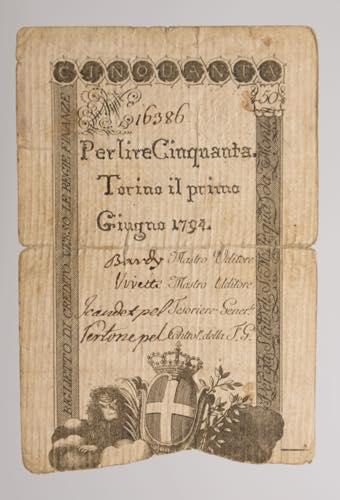 CINQUANTA
N.º 16386
£ 50
Per lire Cinquanta.
Torino il primo
Giugno 1794.
Bardy Mastro Uditore
Vivette Mastro Uditore
pel Tesoriere Gener.e
pel Control.e della T. G.
BIGLIETTO DI CREDITO VERSO LE REGIE FINANZE